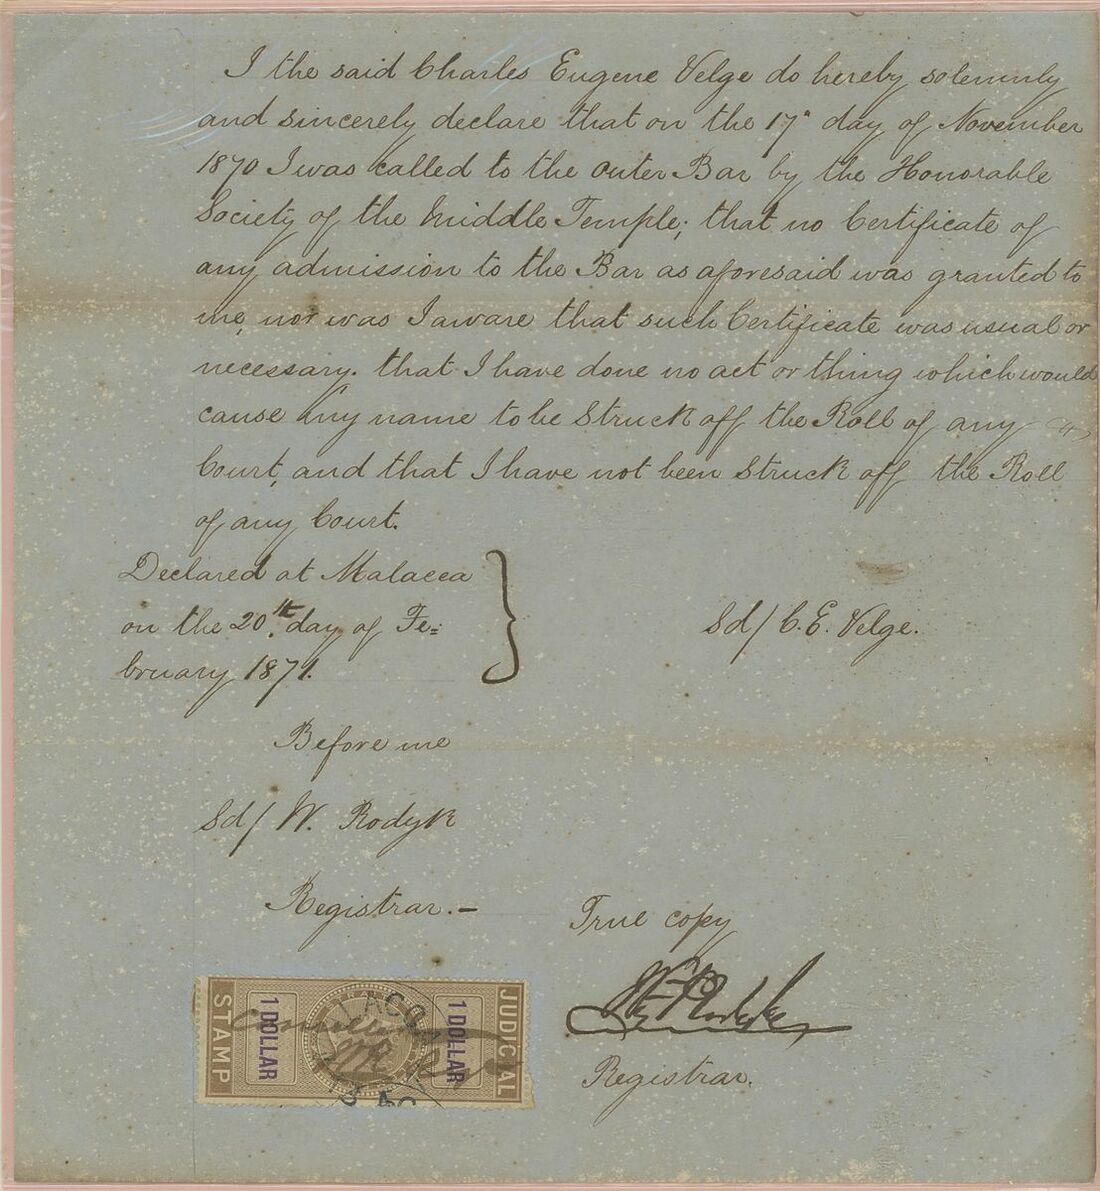 I the said Charles Eugene Velge do hereby solemnly
and sincerely declare that on the 17th day of November
1870 I was called to the outer Bar by the Honorable
Society of the Middle Temple; that no Certificate of
any admission to the Bar as aforesaid was granted to
me, nor was I aware that such Certificate was usual or
necessary. that I have done no act or thing which would
cause my name to be Struck off the Roll of any
Court, and that I have not been Struck off the Roll
of any Court.
Declared at Malacca
on the 20th day of Fe=
bruary 1871.
Sd/ C. E. Velge.
Before me
Sd/ W. Rodyk
Registrar.-
True copy
Registrar.
STAMP
1 DOLLAR
1 DOLLAR
JUDICIAL